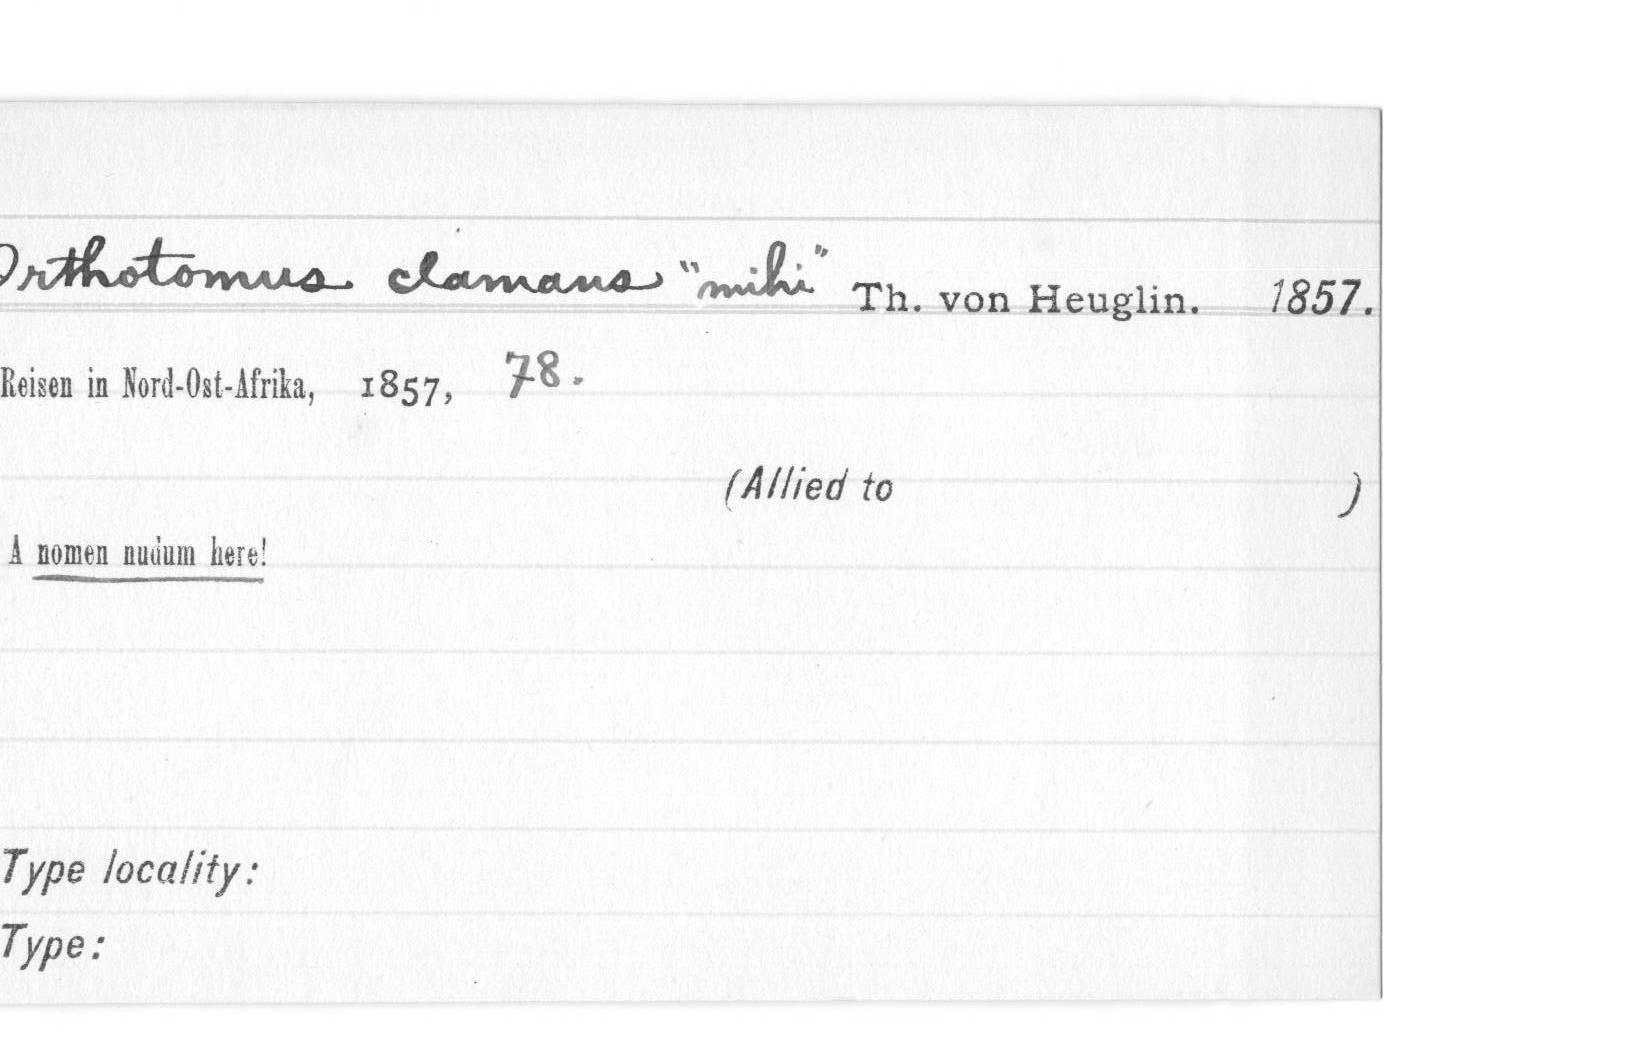 Orthotomus clamans "mihi" Th. von Heuglin. 1857.
Reisen in Nord-Ost-Afrika, 1857, 78.
(Allied to )
A nomen nudum here!
Type locality:
Type: